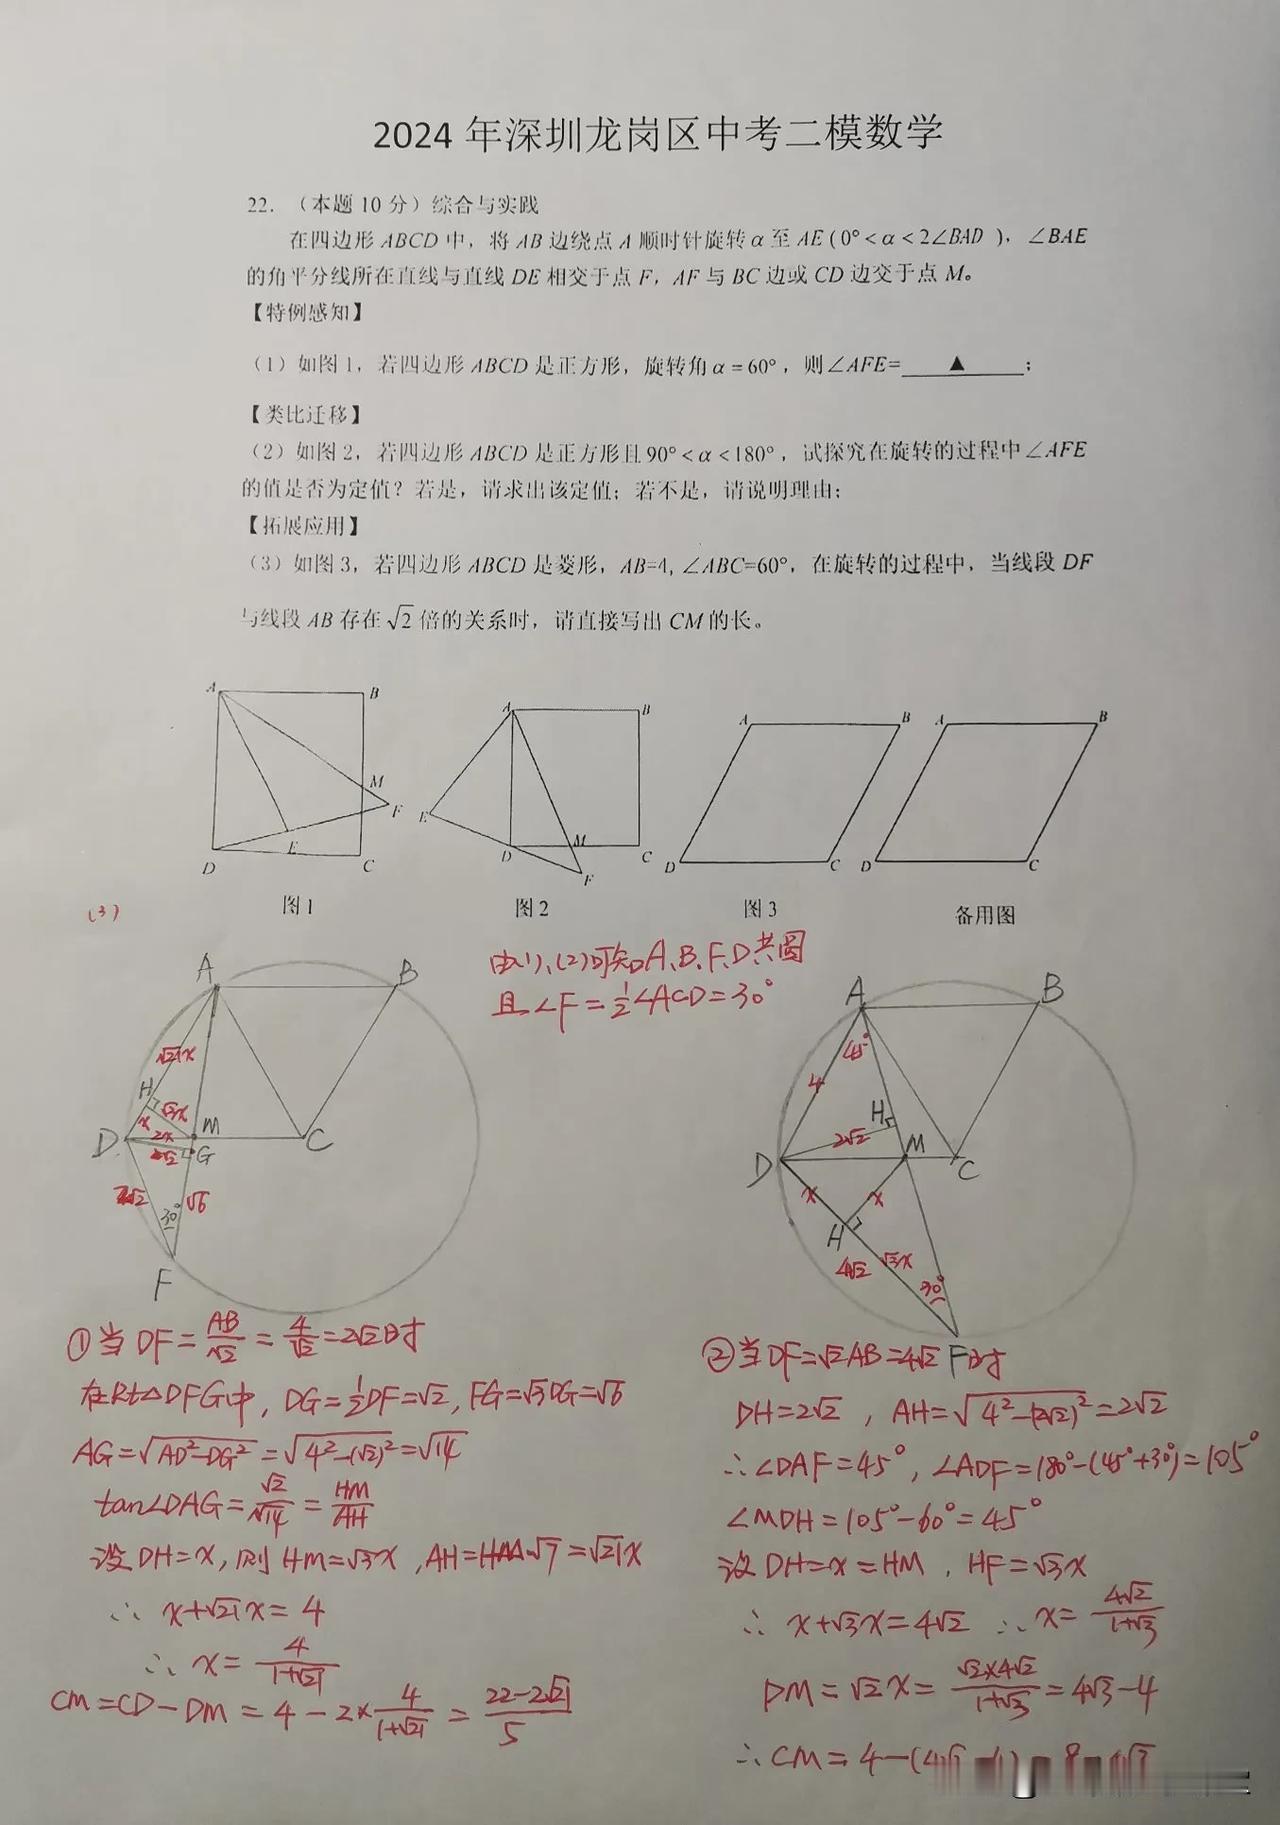 2024年深圳龙岗区中考二模数学
22．（本题10分）综合与实践
在四边形ABCD中，将AB边绕点A顺时针旋转α至AE(0°<α<2∠BAD)，∠BAE
的角平分线所在直线与直线DE相交于点F，AF与BC边或CD边交于点M。
【特例感知】
（1）如图1，若四边形ABCD是正方形，旋转角α=60°，则∠AFE=____▲____；
【类比迁移】
（2）如图2，若四边形ABCD是正方形且90°<α<180°，试探究在旋转的过程中∠AFE
的值是否为定值？若是，请求出该定值；若不是，请说明理由；
【拓展应用】
（3）如图3，若四边形ABCD是菱形，AB=4，∠ABC=60°，在旋转的过程中，当线段DF
与线段AB存在√2倍的关系时，请直接写出CM的长。
A B M F E D C
A B E D M C F
A B D C
A B D C
图1 图2 图3 备用图
(3)
由(1)、(2)可知A、B、F、D共圆
且∠F=½∠ACD=30°
A B √21x H √3x x 2x D M C G √2 2√2 √6 30° F
A B 45° 4 H 2√2 D M C x x H 4√2 √3x 30° F
①当DF=AB/√2=4/√2=2√2时
在Rt△DFG中，DG=½DF=√2，FG=√3DG=√6
AG=√(AD²-DG²)=√(4²-(√2)²)=√14
tan∠DAG=√2/√14=HM/AH
设DH=x，则HM=√3x，AH=HM·√7=√21x
∴ x+√21x=4
∴ x=4/(1+√21)
CM=CD-DM=4-2×4/(1+√21)=(22-2√21)/5
②当DF=√2AB=4√2时
DH=2√2，AH=√(4²-(2√2)²)=2√2
∴∠DAF=45°，∠ADF=180°-(45°+30°)=105°
∠MDH=105°-60°=45°
设DH=x=HM，HF=√3x
∴ x+√3x=4√2 ∴ x=4√2/(1+√3)
DM=√2x=(√2×4√2)/(1+√3)=4√3-4
∴CM=4-(4